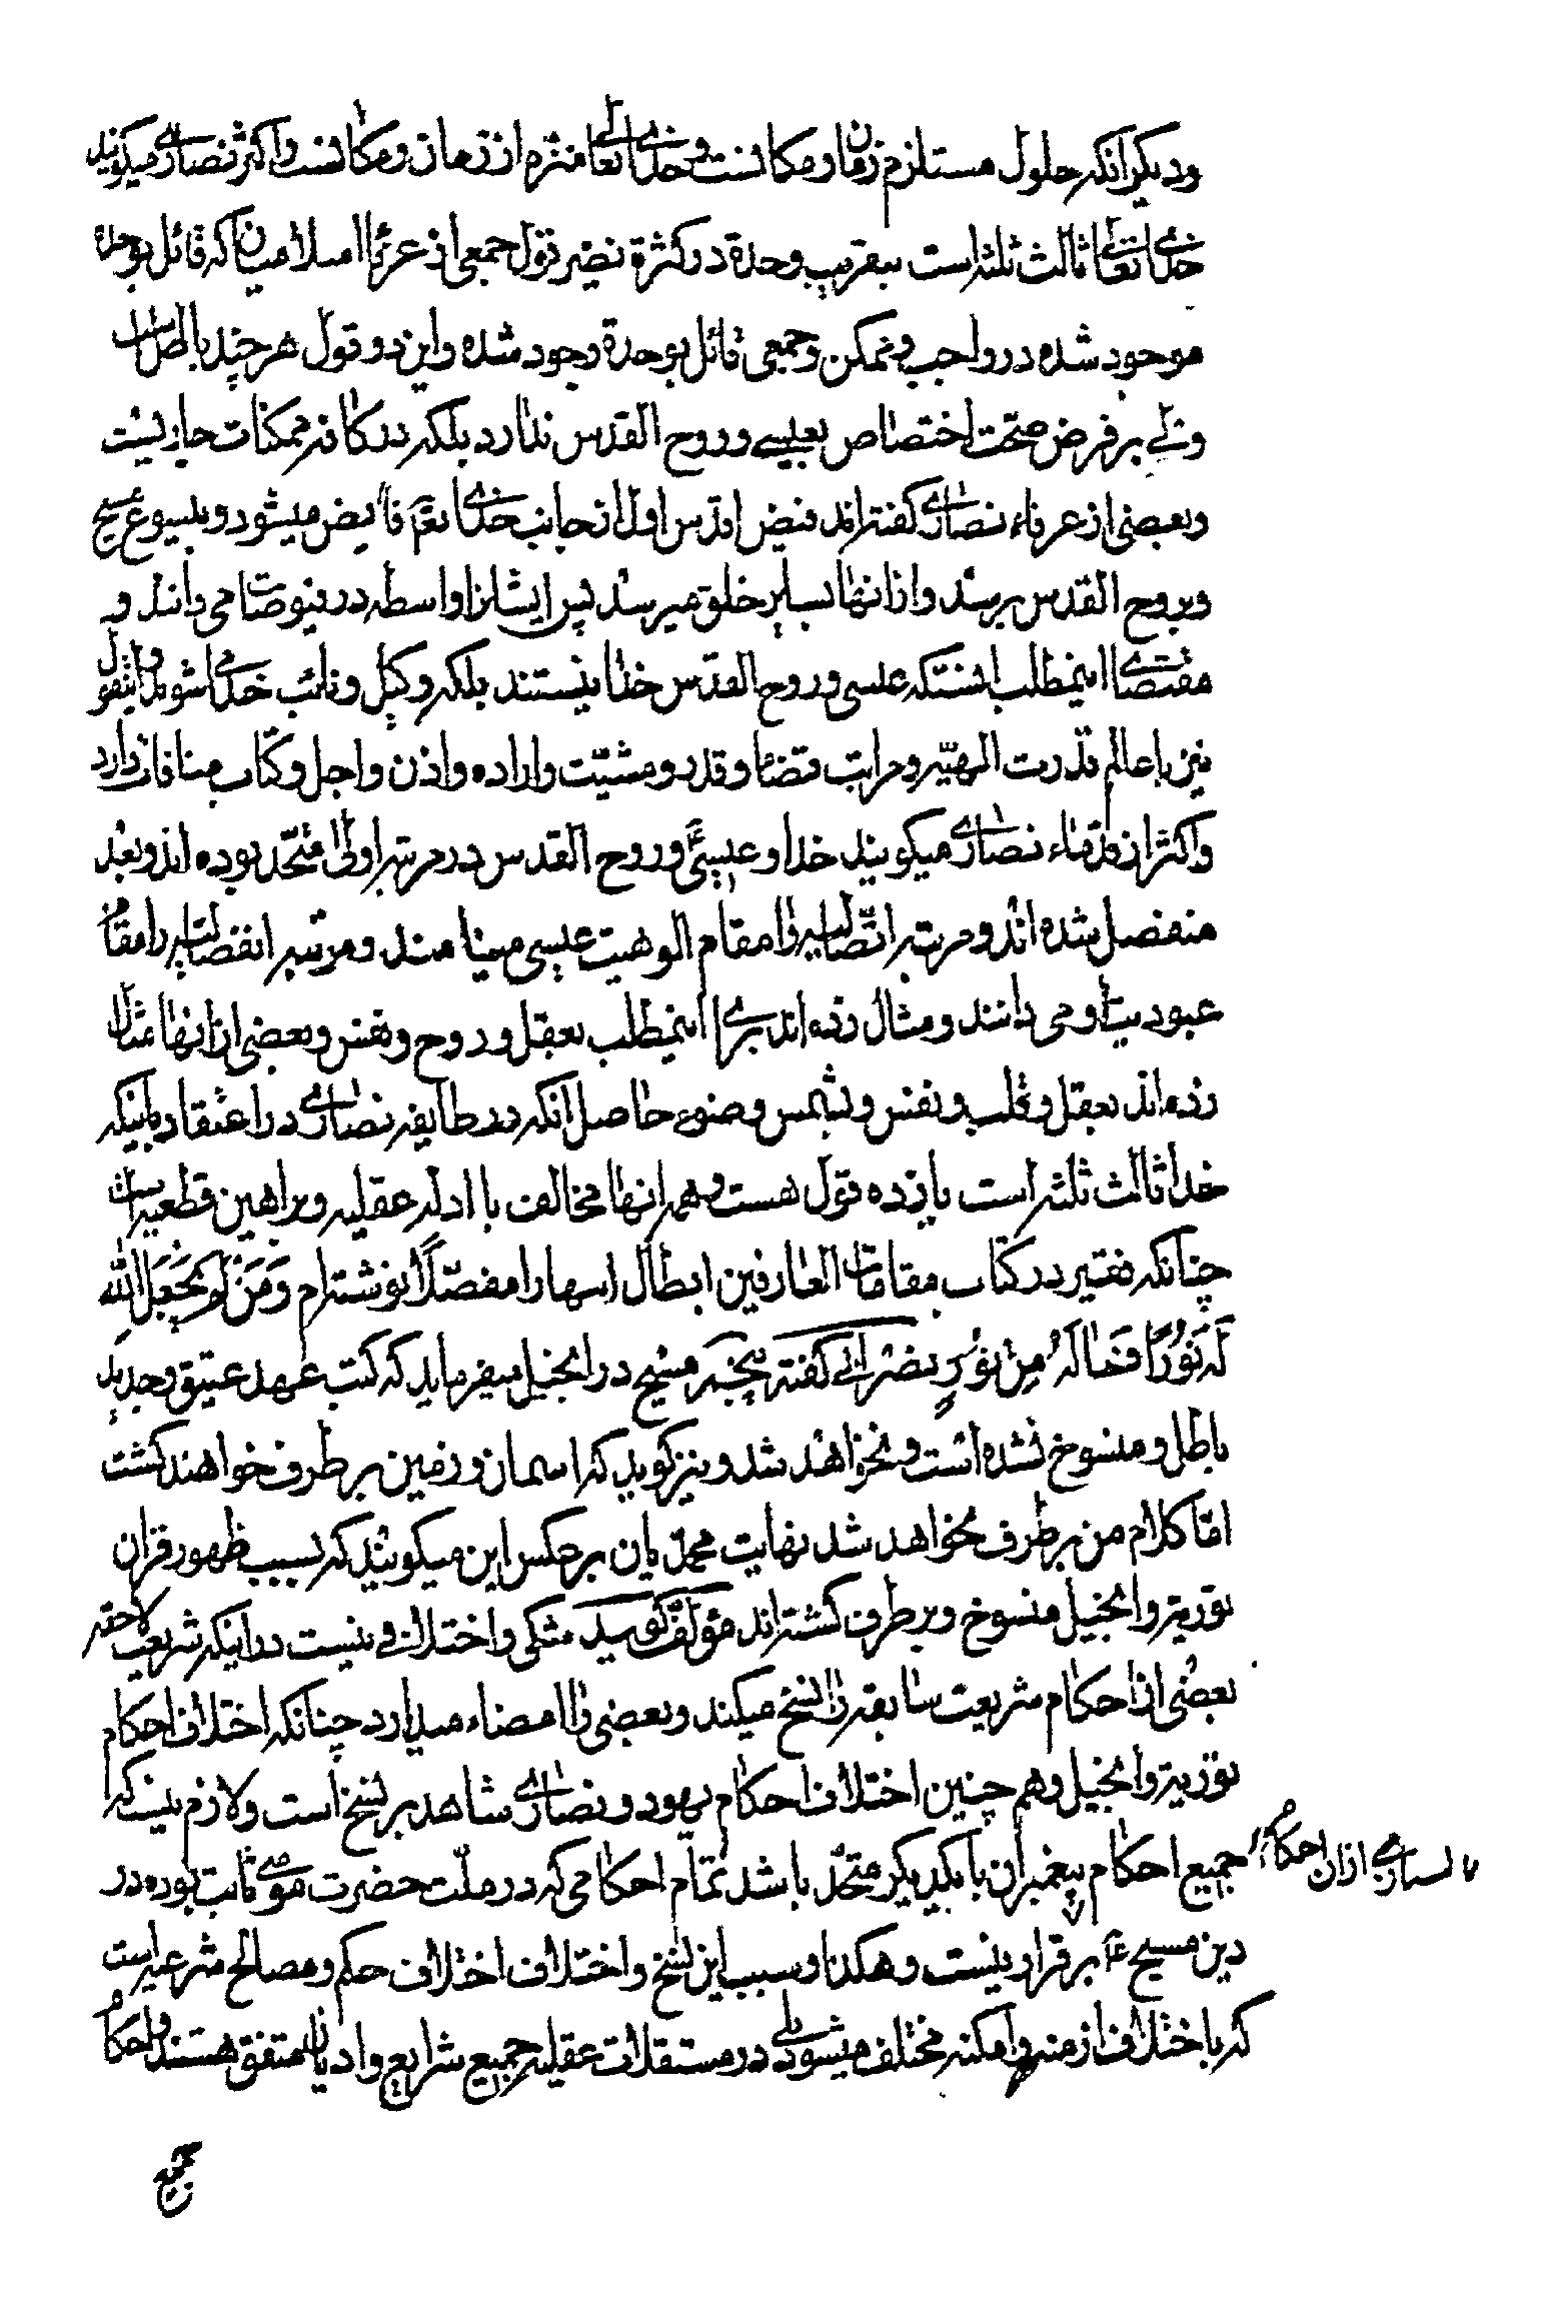 ودیکر انکه حلول مستلزم زمان ومکانست وخدای تعالی منزه از زمان ومکانست واکثر نصاری میکویند
خدای تعالی ثالث ثلثه است بتقریب وحدة در کثرة نضیر قول جمعی از عرفا اسلامیان که قائل بوحدة
موجود شده در واجب وممکن وجمعی قائل بوحدة وجود شده واین دو قول هر چند باطل است
ولی بر فرض صحت اختصاص بعیسی وروح القدس ندارد بلکه در کافه ممکنات جاریست
وبعضی از عرفاء نصاری کفته اند فیض اقدس اول از جانب خدای تع فایض میشود ویسوع مسیح
وبروح القدس برسد واز انها بسایر خلق میرسد پس ایشانرا واسطه در فیوضات می دانند و
مقتضای اینمطلب انستکه عیسی وروح القدس خدا نیستند بلکه وکیل ونائب خدا میباشوند واینقول
نیز با عالم قدرت الهیه ومراتب قضا وقدر ومشیت واراده واذن واجل وکتاب منافات دارد
واکثر از قدماء نصاری میکویند خدا وعیسی وروح القدس در مرتبه اولی متحد بوده اند وبعد
منفصل شده اند ومرتبه اتصالیه را مقام الوهیت عیسی مینامند ومرتبه انفصالیه را مقام
عبودیت او می دانند ومثال زده اند برای اینمطلب بعقل وروح ونفس وبعضی از انها مثال
زده اند بعقل وقلب ونفس وبشمس وضوء حاصل انکه در طایفه نصاری در اعتقاد باینکه
خدا ثالث ثلثه است یازده قول هست وهمه انها مخالف با ادله عقلیه وبراهین قطعیه است
چنانکه فقیر در کتاب مقامات العارفین ابطال اینها را مفصلاً نوشته ام وَمَنْ لَمْ یَجْعَلِ اللّٰهُ
لَهُ نُورًا فَمَا لَهُ مِنْ نُورٍ نصرانی کفته پنجم مسیح در انجیل میفرماید که کتب عهد عتیق وجدید
باطل ومنسوخ نشده است ونخواهد شد ونیز کوید که اسمان وزمین بر طرف خواهند کشت
اما کلام من بر طرف نخواهد شد نهایت محمدیان بر عکس این میکویند که بسبب ظهور قران
توریة وانجیل منسوخ وبر طرف کشته اند مؤلف کوید شکی واختلافی نیست در اینکه شریعت لاحقه
بعضی از احکام شریعت سابقه را نسخ میکند وبعضی را امضاء میدارد چنانکه اختلاف احکام
توریة وانجیل وهم چنین اختلاف احکام یهود ونصاری شاهد بر نسخ است ولازم نیست که
جمیع احکام پیغمبران با یکدیکر متحد باشد تمام احکامی که در ملت حضرت موسی ثابت بوده در
یا بسیاری از ان احکام
دین مسیح ع برقرار نیست وهکذا وسبب این نسخ واختلاف اختلاف حکم ومصالح شرعیه است
که باختلاف ازمنه وامکنه مختلف میشود بلی در مستقلات عقلیه جمیع شرایع وادیان متفق هستند واحکام
جمیع